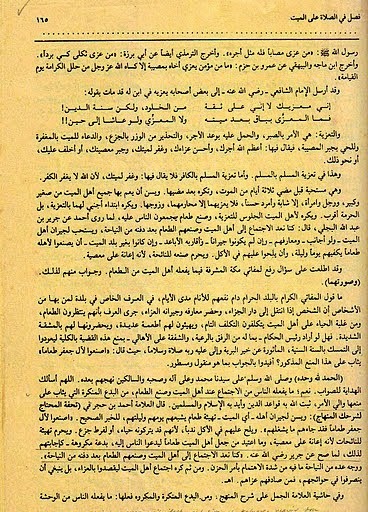 فصل في الصلاة على الميت ١٦٥
رسول الله ﷺ: «من عزى مصاباً فله مثل أجره». وأخرج الترمذي أيضاً عن أبي برزة: «من عزى ثكلى كسي برداً».
وأخرج ابن ماجه والبيهقي عن عمرو بن حزم: «ما من مؤمن يعزي أخاه بمصيبة إلا كساه الله عز وجل من حلل الكرامة يوم
القيامة».
وقد أرسل الإمام الشافعي ـ رضي الله عنه ـ إلى بعض أصحابه يعزيه في ابن له قد مات بقوله:
إني معزيك لا إني على ثقة من الخلود، ولكن سنة الدين!
فما المعزَّى بباق بعد ميته ولا المعزِّي ولو عاشا إلى حين!!
والتعزية: هي الأمر بالصبر، والحمل عليه بوعد الأجر، والتحذير من الوزر بالجزع، والدعاء للميت بالمغفرة
وللحي بجبر المصيبة، فيقال فيها: أعظم الله أجرك، وأحسن عزاءك، وغفر لميتك، وجبر معصيتك، أو أخلف عليك،
أو نحو ذلك.
وهذا في تعزية المسلم بالمسلم. وأما تعزية المسلم بالكافر فلا يقال فيها: وغفر لميتك، لأن الله لا يغفر الكفر.
وهي مستحبة قبل مضي ثلاثة أيام من الموت، وتكره بعد مضيها. ويسن أن يعم بها جميع أهل الميت من صغير
وكبير، ورجل وامرأة، إلا شابة وأمرد حسناً، فلا يعزيهما إلا محارمهما، وزوجهما. ويكره ابتداء أجنبي لهما بالتعزية، بل
الحرمة أقرب. ويكره لأهل الميت الجلوس للتعزية، وصنع طعام يجمعون الناس عليه، لما روى أحمد عن جرير بن
عبد الله البجلي، قال: كنا نعد الاجتماع إلى أهل الميت وصنعهم الطعام بعد دفنه من النياحة، ويستحب لجيران أهل
الميت ـ ولو أجانب ـ ومعارفهم ـ وإن لم يكونوا جيراناً ـ وأقاربه الأباعد ـ وإن كانوا بغير بلد الميت ـ أن يصنعوا لأهله
طعاماً يكفيهم يوماً وليلة، وأن يلحوا عليهم في الأكل. ويحرم صنعه للنائحة، لأنه إعانة على معصية.
وقد اطلعت على سؤال رفع لمفاتي مكة المشرفة فيما يفعله أهل الميت من الطعام. وجواب منهم لذلك.
(وصورتهما)
ما قول المفاتي الكرام بالبلد الحرام دام نفعهم للأنام مدى الأيام، في العرف الخاص في بلدة لمن بها من
الأشخاص أن الشخص إذا انتقل إلى دار الجزاء، وحضر معارفه وجيرانه العزاء، جرى العرف بأنهم ينتظرون الطعام،
ومن غلبة الحياء على أهل الميت يتكلفون التكلف التام، ويهيئون لهم أطعمة عديدة، ويحضرونها لهم بالمشقة
الشديدة. فهل لو أراد رئيس الحكام ـ بما له من الرفق بالرعية، والشفقة على الأهالي ـ بمنع هذه القضية بالكلية ليعودوا
إلى التمسك بالسنة السنية، المأثورة عن خير البرية وإلى عليه ربه صلاة وسلاماً، حيث قال: (اصنعوا لآل جعفر طعاماً)
يثاب على هذا المنع المذكور؟ أفيدوا بالجواب بما هو منقول ومسطور.
(الحمد لله وحده) وصلى الله وسلم على سيدنا محمد وعلى آله وصحبه والسالكين نهجهم بعده. اللهم أسألك
الهداية للصواب. نعم، ما يفعله الناس من الاجتماع عند أهل الميت وصنع الطعام، من البدع المنكرة التي يثاب على
منعها والي الأمر، ثبت الله به قواعد الدين وأيد به الإسلام والمسلمين. قال العلامة أحمد بن حجر في (تحفة المحتاج
لشرحك المنهاج): ويسن لجيران أهله ـ أي الميت ـ تهيئة طعام يشبعهم يومهم وليلتهم، للخبر الصحيح. «اصنعوا لآل
جعفر طعاماً فقد جاءهم ما يشغلهم». ويلح عليهم في الأكل ندباً، لأنهم قد يتركونه حياء، أو لفرط جزع. ويحرم تهيئه
للنائحات لأنه إعانة على معصية، وما اعتيد من جعل أهل الميت طعاماً ليدعوا الناس إليه، بدعة مكروهة ـ كإجابتهم
لذلك، لما صح عن جرير رضي الله عنه. كنا نعد الاجتماع إلى أهل الميت وصنعهم الطعام بعد دفنه من النياحة.
ووجه عده من النياحة ما فيه من شدة الاهتمام بأمر الحزن. ومن ثم كره اجتماع أهل الميت ليقصدوا بالعزاء، بل ينبغي أن
ينصرفوا في حوائجهم، فمن صادفهم عزاهم. اهـ.
وفي حاشية العلامة الجمل على شرح المنهج: ومن البدع المنكرة والمكروه فعلها: ما يفعله الناس من الوحشة